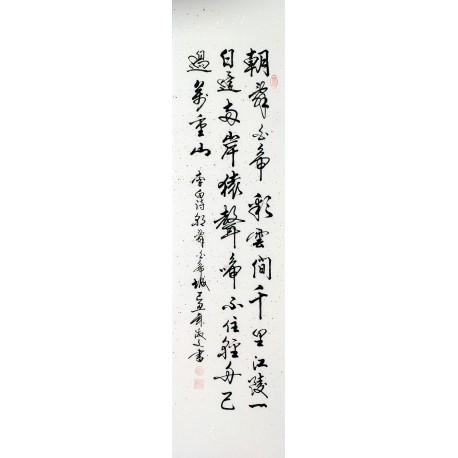 朝辞白帝彩雲間千里江陵一
日還两岸猿聲啼不住輕舟已
過萬重山 李白詩朝辞白帝城己丑 書